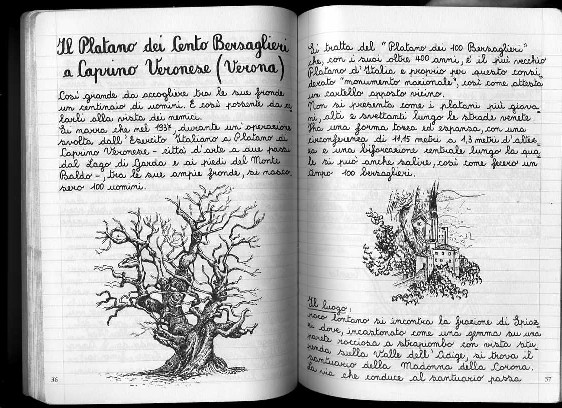 Il Platano dei Cento Bersaglieri
a Caprino Veronese (Verona)
Così grande da accogliere tra le sue fronde
un centinaio di uomini. E così possente da ce_
larli alla vista dei nemici.
Si narra che nel 1937, durante un'operazione
svolta dall'Esercito Italiano a Platano di
Caprino Veronese - città d'arte a due passi
dal Lago di Garda e ai piedi del Monte
Baldo -, tra le sue ampie fronde, si nasco_
sero 100 uomini.
36
Si tratta del "Platano dei 100 Bersaglieri"
che, con i suoi oltre 400 anni, è il più vecchio
Platano d'Italia e proprio per questo consi_
derato "monumento nazionale", così come attesta
un cartello apposto vicino.
Non si presenta come i platani più giova_
ni, alti e svettanti lungo le strade venete.
Ha una forma tozza ed espansa, con una
circonferenza di metri a 1,3 metri d'altez_
za e una biforcazione centrale lungo la qua_
le si può anche salire, così come fecero un
tempo 100 bersaglieri.
Il luogo.
Poco lontano si incontra la frazione di Spiaz_
zi dove, incastonato come una gemma su una
parete rocciosa a strapiombo con vista stu_
penda sulla Valle dell'Adige, si trova il
santuario della Madonna della Corona.
La via che conduce al santuario passa
37